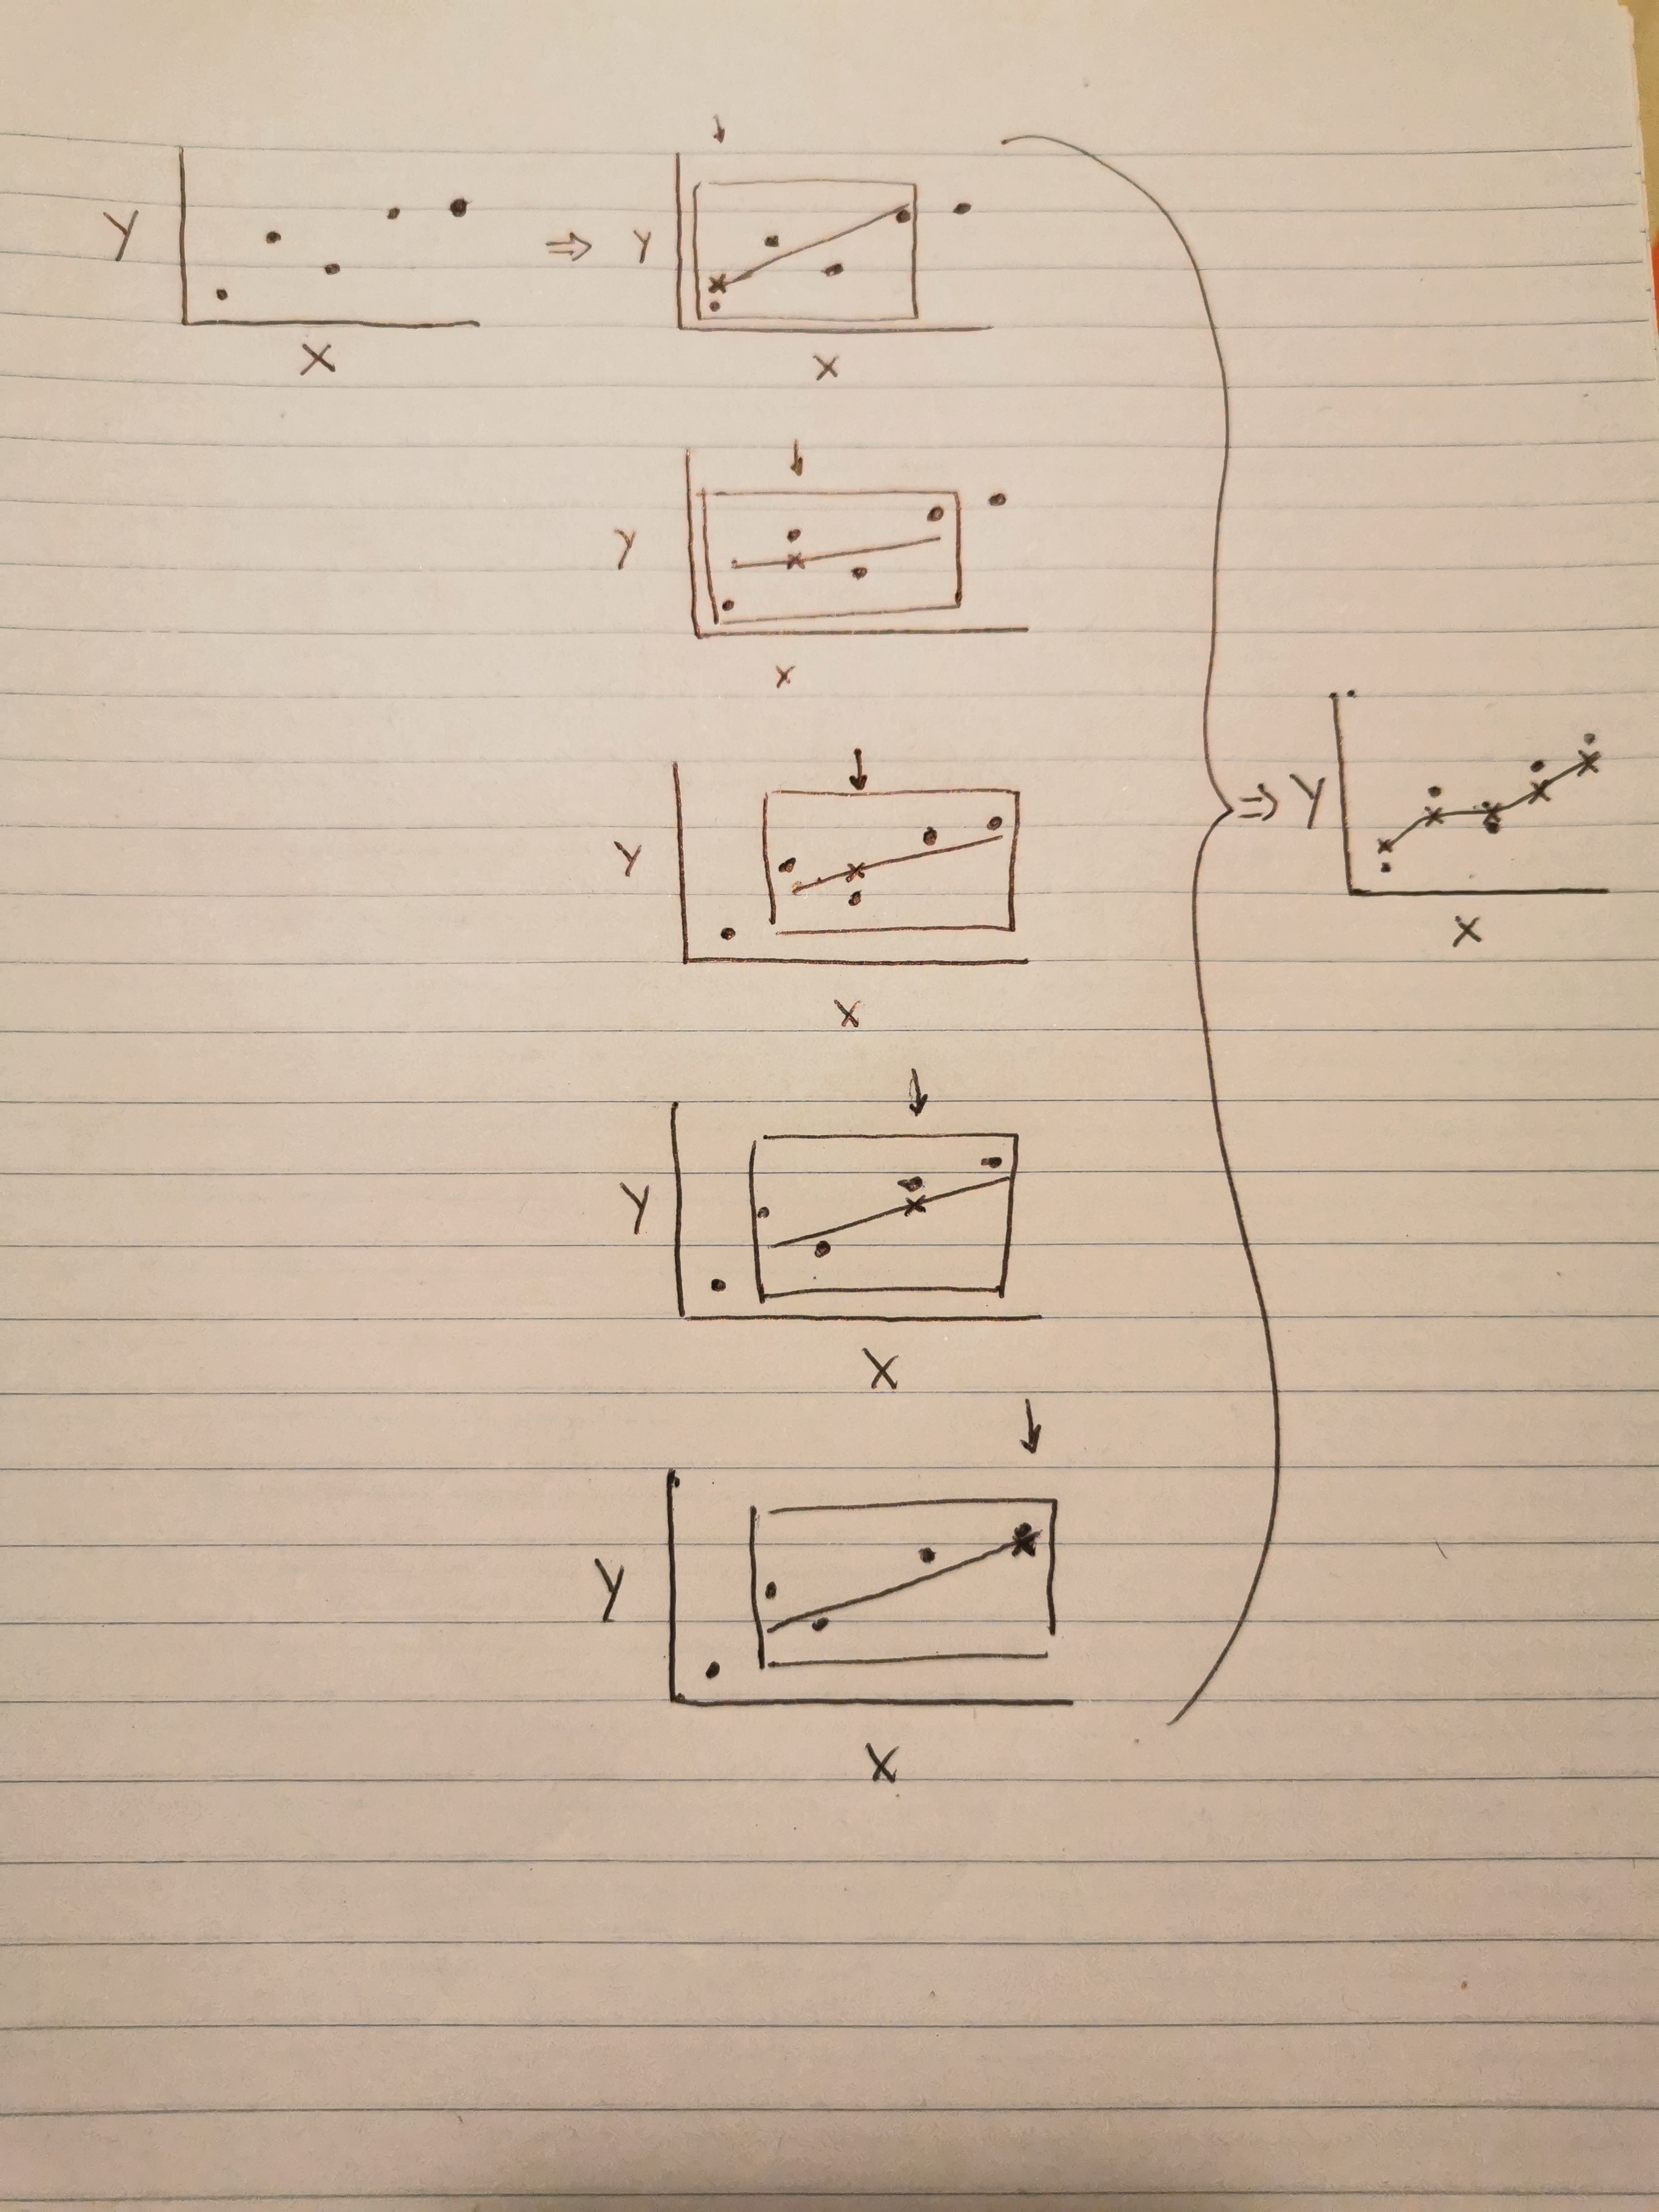 Y
X
⇒ Y
X
Y
X
Y
X
Y
X
Y
X
⇒ Y
X